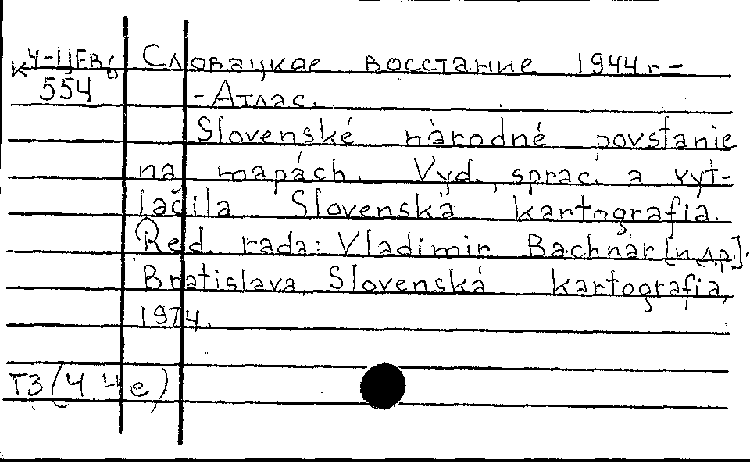 к Ч-ЦЕВ6 Словацкое восстание 1944 г.-
554 -Атлас.
Slovenské národné povstanie
na mapách. Vyd., sprac. a vyt-
lačila Slovenská kartografia.
Red. rada: Vladimir Bachnár [и др.].
Bratislava, Slovenská kartografia,
1974.
Т3(4 Че)